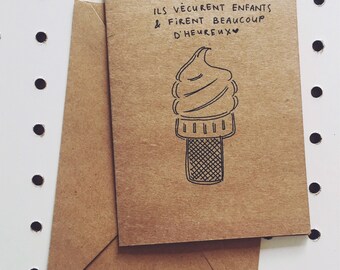 ILS VÉCURENT ENFANTS
& FIRENT BEAUCOUP
D'HEUREUX♥